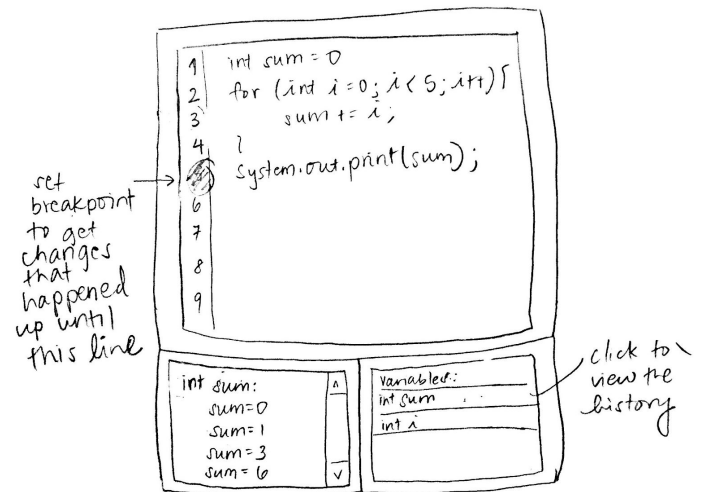 1 int sum = 0
2 for (int i = 0; i < 5; i++) {
3 sum += i;
4 }
System.out.print(sum);
6
7
8
9
set
breakpoint
to get
changes
that
happened
up until
this line
int sum:
sum=0
sum=1
sum=3
sum=6
variables:
int sum
int i
click to
view the
history